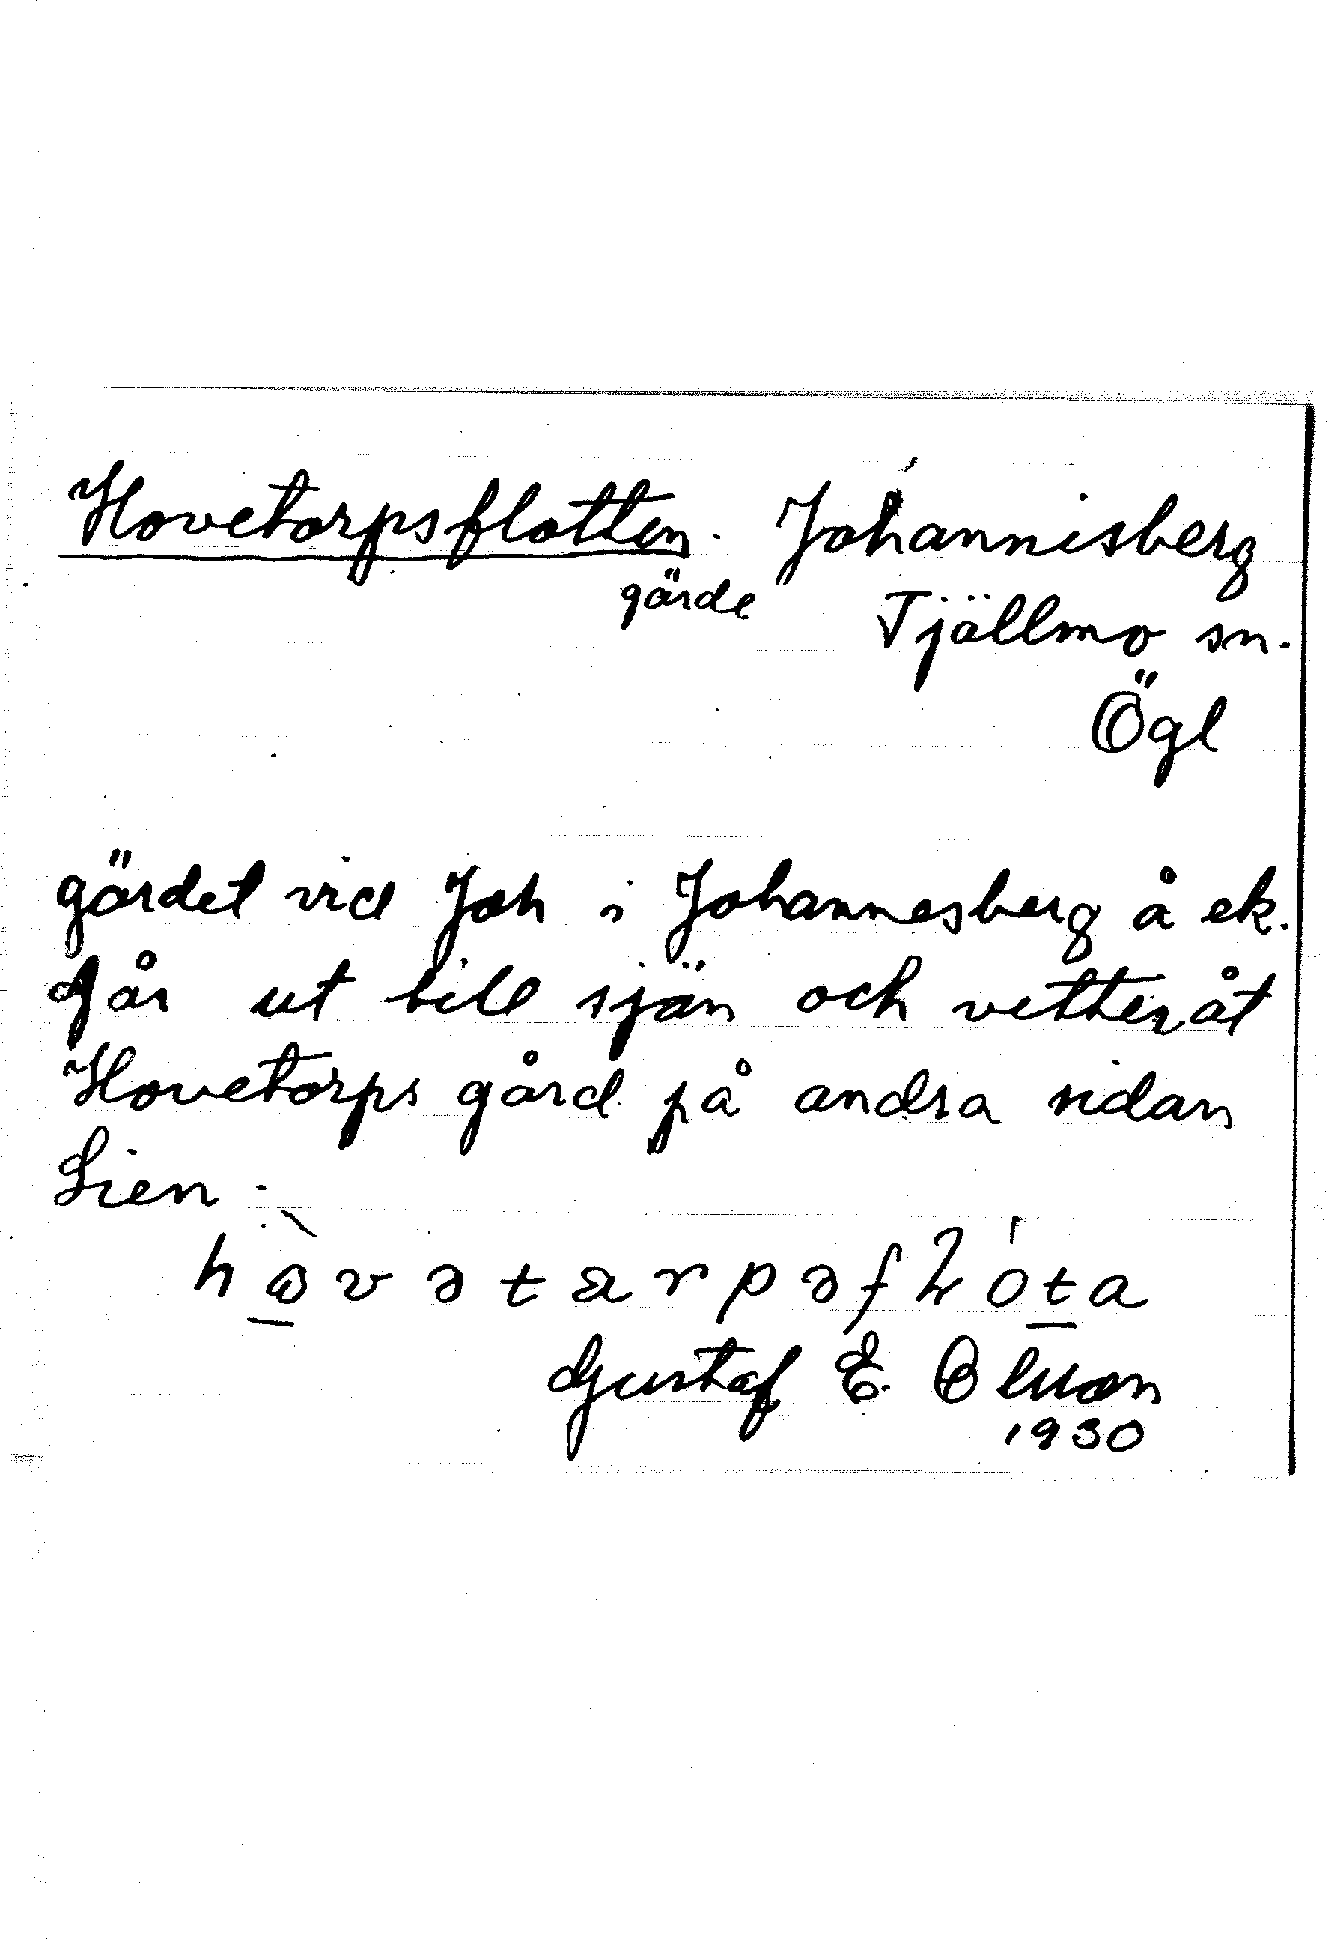 Hovetorpsflotten. Johannisberg
gärde Tjällmo sn.
Ögl
gärdet vid Joh i Johannesberg å ek.
Går ut till sjön och vetter åt
Hovetorps gård på andra sidan
Lien.
Gustaf E. Olsson
1930